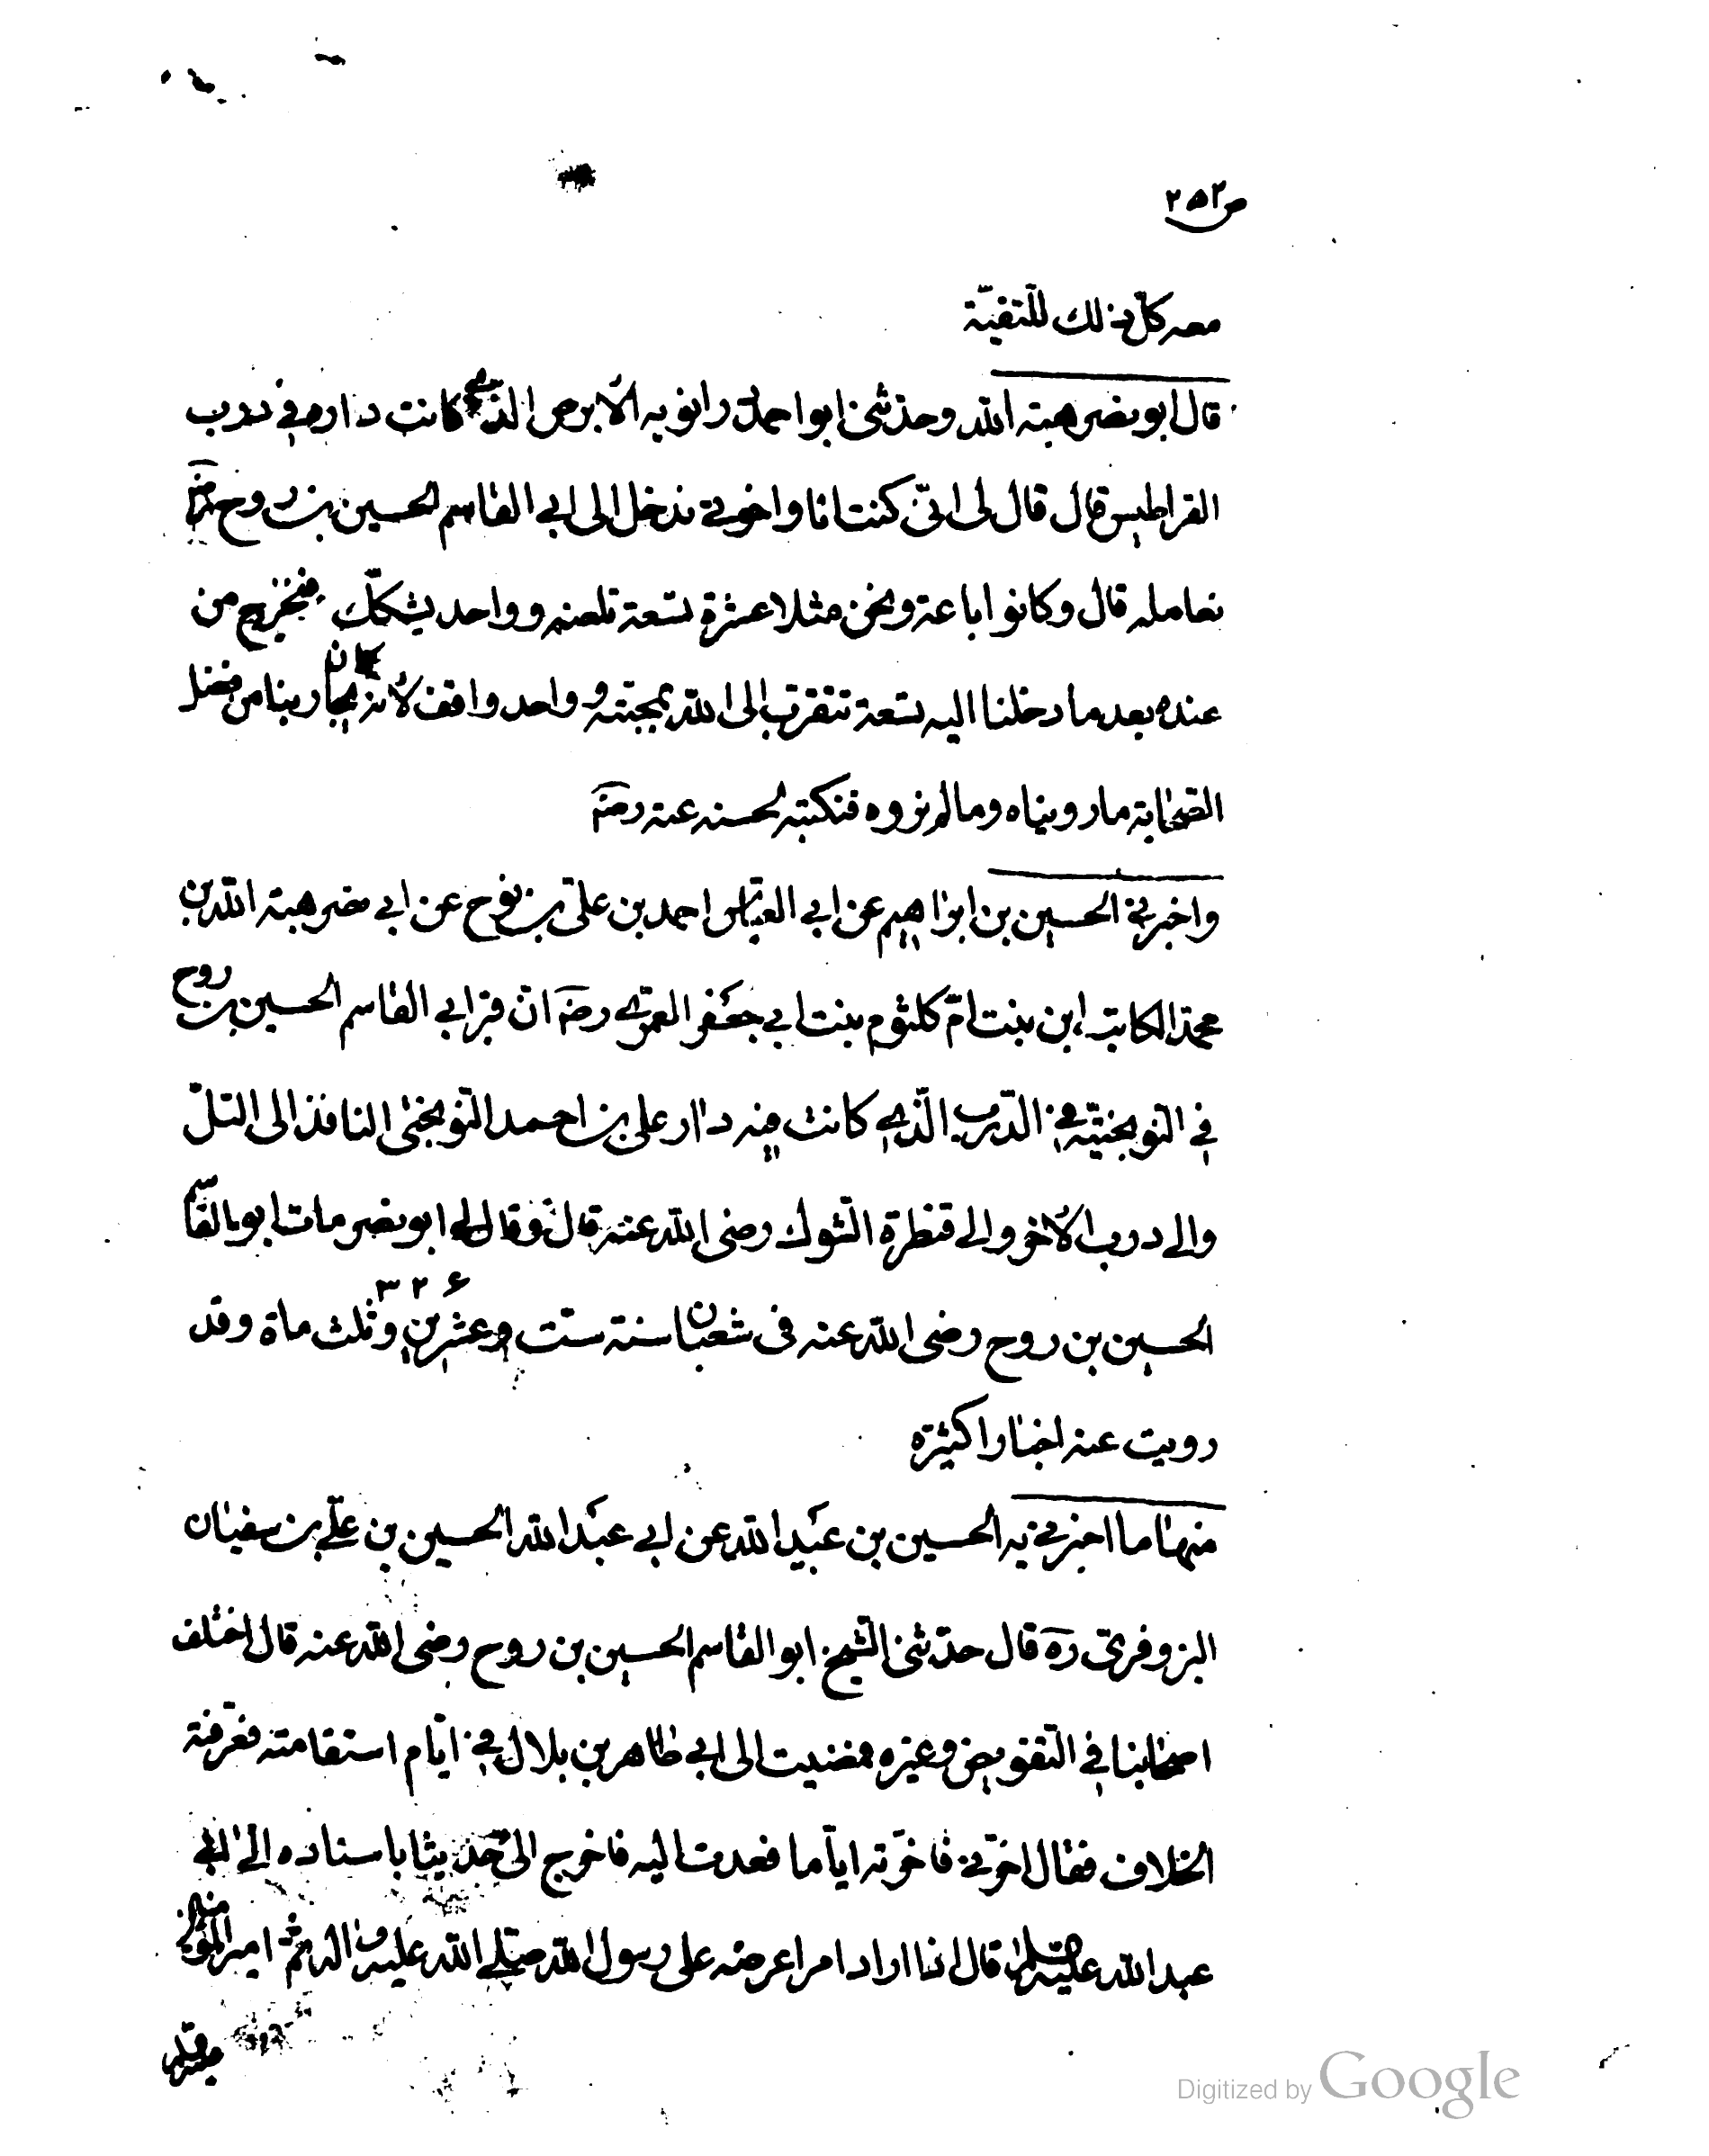 ص ٢٥٢
معه كلّ ذلك للتقيّة
قال ابو نصر هبة الله وحدّثنى ابو احمد درانويه الأبرص الذى كانت داره فى درب
القراطيس قال قال لى انّى كنت انا واخوتى ندخل الى ابى القاسم الحسين بن روح رضه
نعامله قال وكانوا باعة ونحن مثلا عشرة تسعة نلعنه وواحد يشكّك فنخرج من
عنده بعد ما دخلنا اليه تسعة نتقرّب الى الله بمحبّته وواحد واقف لأنه كان يجارينا من فضل
الصّحابة ما رويناه وما لم نروه فنكتبه لحسنه عنه رضه
واخبرنى الحسين بن ابراهيم عن ابى العبّاس احمد بن علىّ بن نوح عن ابى نصر هبة الله بن
محمّد الكاتب ابن بنت امّ كلثوم بنت ابى جعفر العمرى رضه انّ قبر ابى القاسم الحسين بن روح
فى النّوبختيّة فى الدّرب الّذى كانت فيه دار على بن احمد النّوبختى النافذ الى التلّ
والى درب الآخر والى قنطرة الشّوك رضى الله عنه قال وقال لى ابو نصر مات ابو القاسم
٣٢۶
الحسين بن روح رضى الله عنه فى شعبان سنة ستّ وعشرين وثلث ماة وقد
رويت عنه اخبارا كثيرة
منها ما اخبرنى به الحسين بن عبيد الله عن ابى عبد الله الحسين بن علىّ بن سفيان
البزوفرىّ ره قال حدّثنى الشّيخ ابو القاسم الحسين بن روح رضى الله عنه قال اختلف
اصحابنا فى التّفويض وغيره فمضيت الى ابى طاهر بن بلال فى ايّام استقامته فعرّفته
الخلاف فقال اخّرنى فاخّرته ايّاما فعدت اليه فاخرج الىّ حديثا باسناده الى ابى
عبد الله عليه السلام قال اذا اراد امرا عرضه على رسول الله صلّى الله عليه واله ثمّ امير المؤمنين